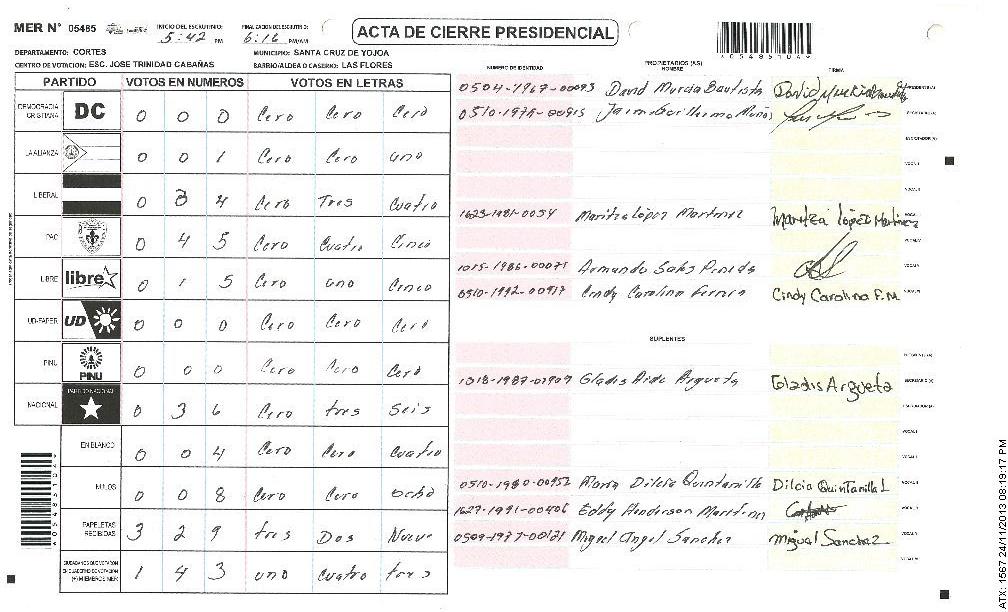 MER N° 05485 INICIO DEL ESCRUTINIO: 5:42 PM FINALIZACION DEL ESCRUTINIO: 6:16 PM/AM
ACTA DE CIERRE PRESIDENCIAL
DEPARTAMENTO: CORTES MUNICIPIO: SANTA CRUZ DE YOJOA
CENTRO DE VOTACION: ESC. JOSE TRINIDAD CABAÑAS BARRIO/ALDEA O CASERIO: LAS FLORES
PARTIDO VOTOS EN NUMEROS VOTOS EN LETRAS
DEMOCRACIA CRISTIANA DC 0 0 0 Cero Cero Cero
LA ALIANZA 0 0 1 Cero Cero uno
LIBERAL 0 3 4 Cero Tres Cuatro
PAC 0 4 5 Cero Cuatro Cinco
LIBRE libre 0 1 5 Cero uno Cinco
UD-FAPER UD 0 0 0 Cero Cero Cero
PINU PINU 0 0 0 Cero Cero Cero
NACIONAL PARTIDO NACIONAL 0 3 6 Cero tres Seis
EN BLANCO 0 0 4 Cero Cero Cuatro
NULOS 0 0 8 Cero Cero ocho
PAPELETAS RECIBIDAS 3 2 9 tres Dos Nueve
CIUDADANOS QUE VOTARON EN CUADERNO DE VOTACION (+) MIEMBROS MER 1 4 3 uno Cuatro tres
PROPIETARIOS (AS)
NUMERO DE IDENTIDAD NOMBRE FIRMA
0504-1967-00093 David Murcia Bautista
Jaime Guillermo
1623-1981-0054 Maritza López Martinez Maritza López Martinez
1015-1986-00071 Armando
0510-1992-00917 Cindy Carolina Cindy Carolina F.M
SUPLENTES
Gladis Argueta Gladis Argueta
0510-1980-00952 Dilcia Quintanilla Dilcia Quintanilla L
1627-1991-00406 Eddy Anderson Martinez
Miguel Angel Sanchez Miguel Sanchez
ATX: 1567 24/11/2013 08:19:17 PM